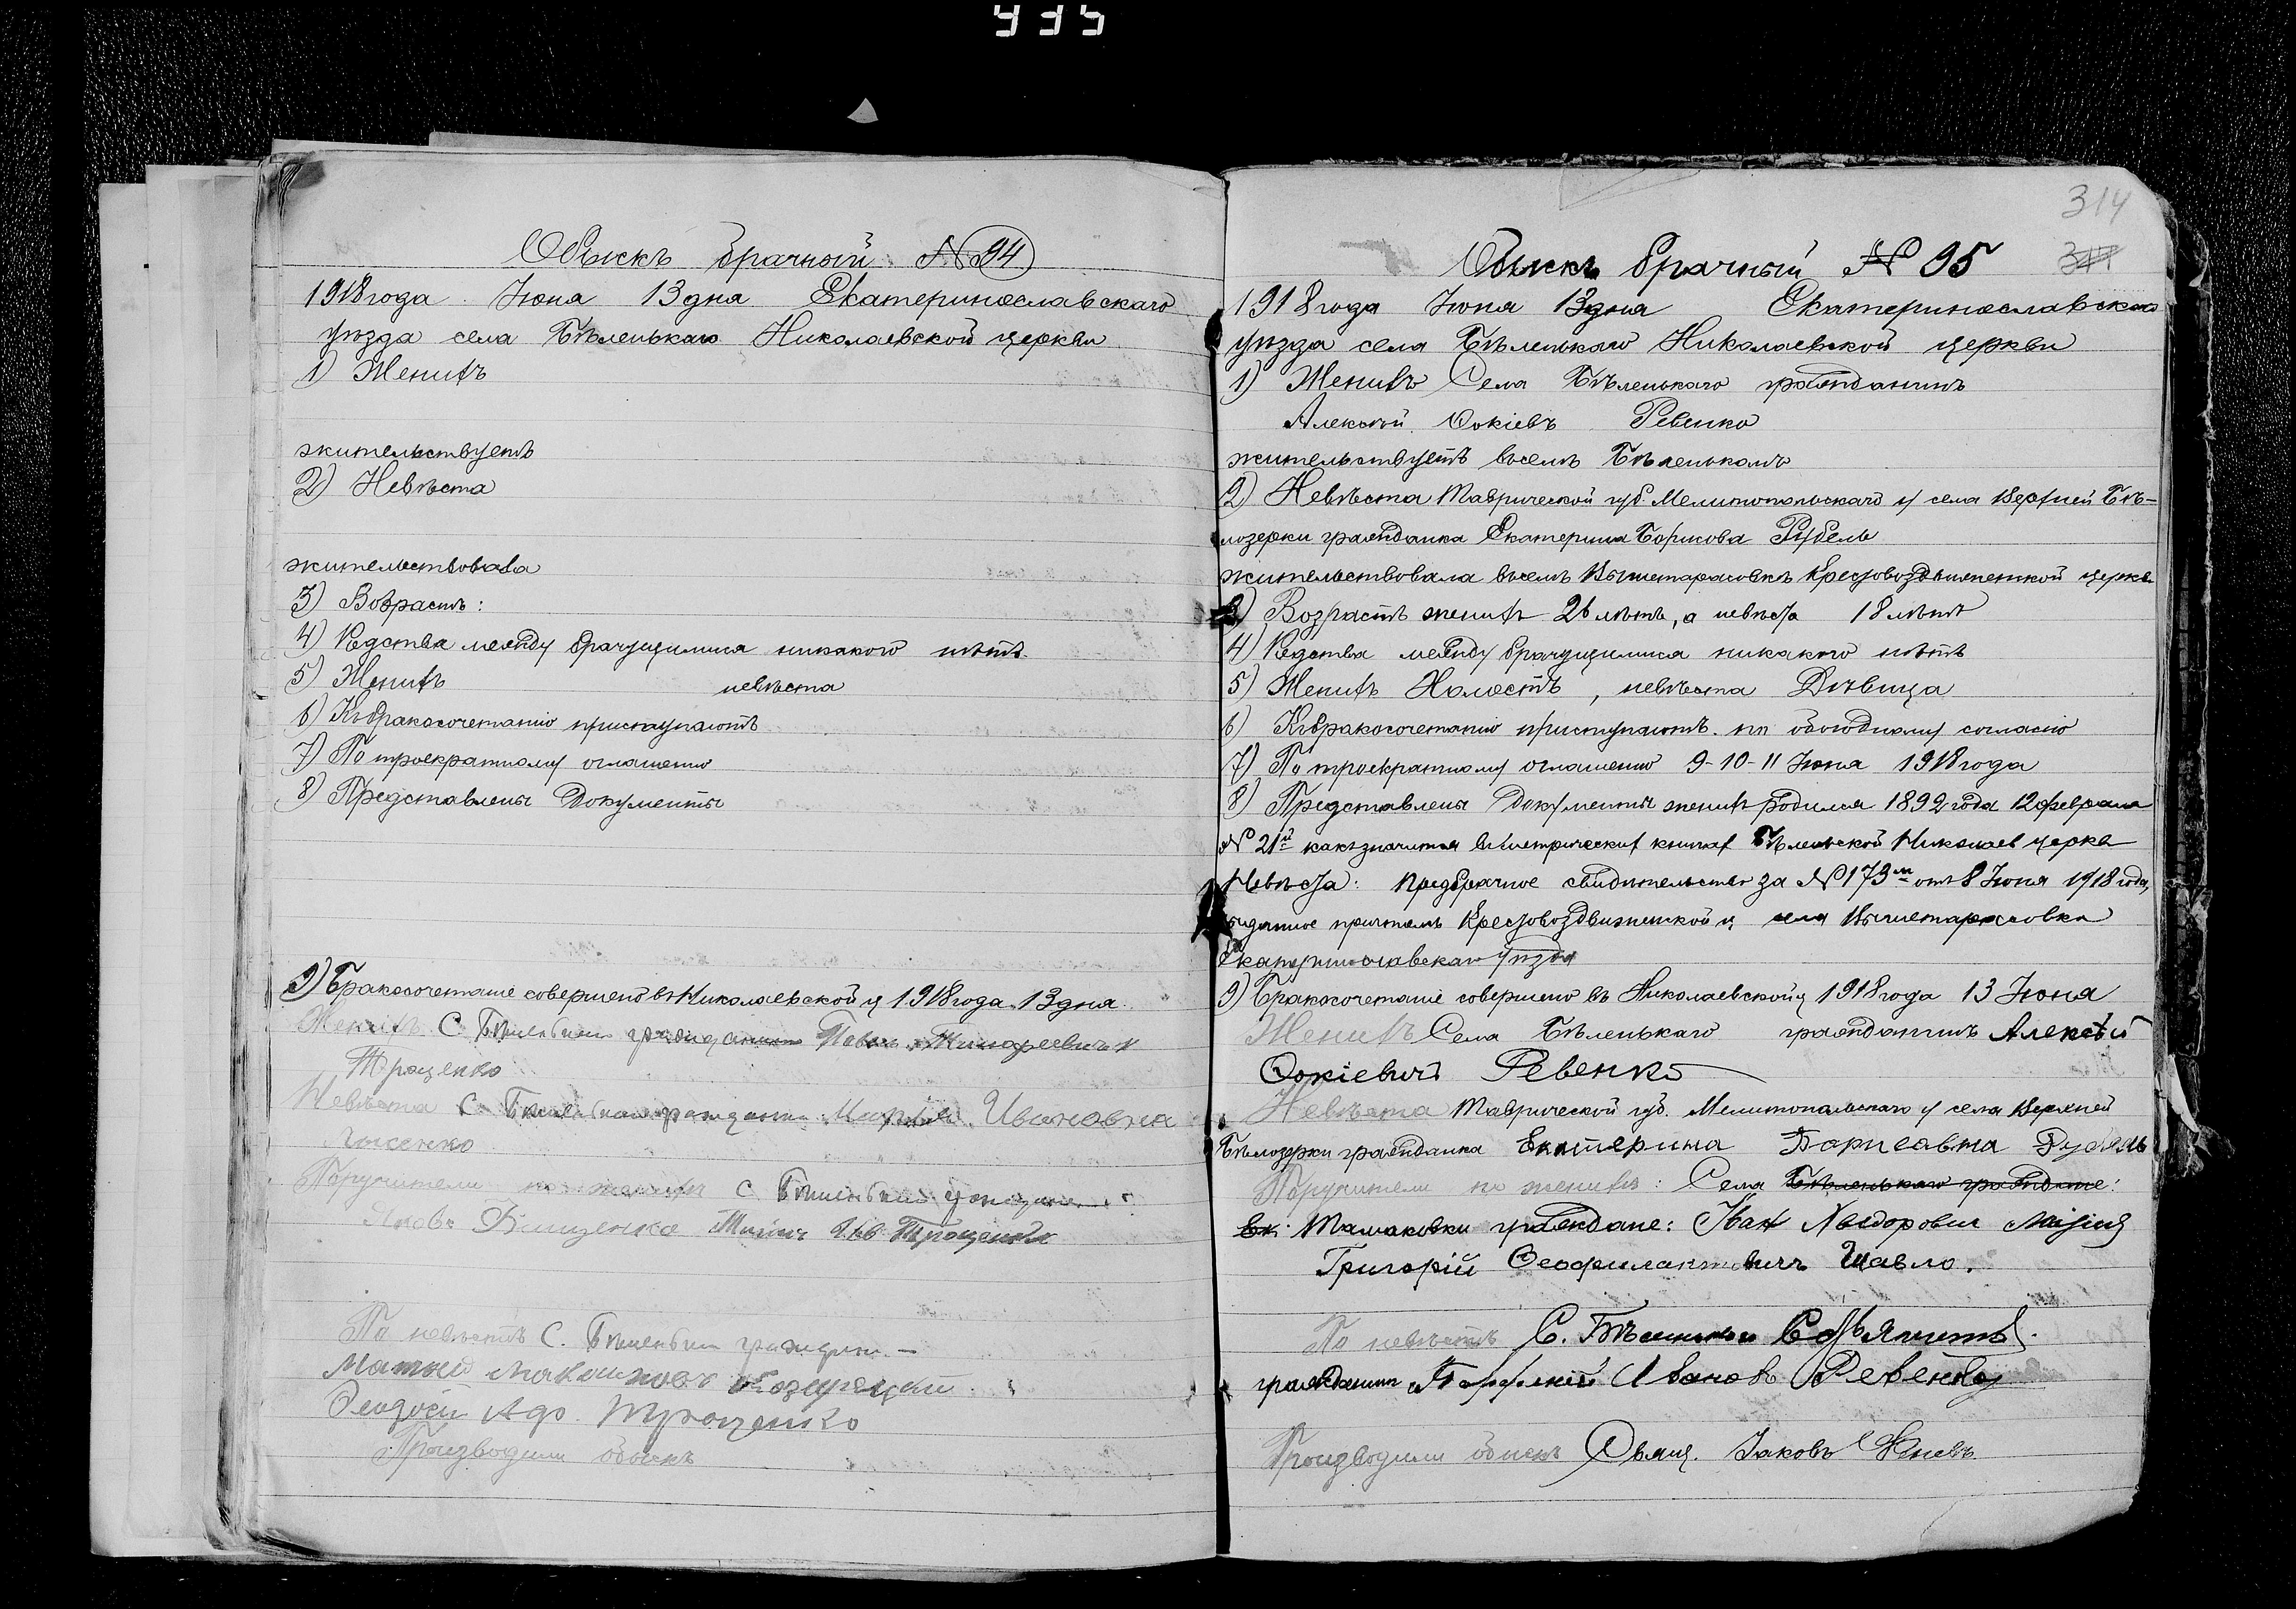 935
Обыскъ брачный № 94
1918 года Іюня 13 дня Екатеринославскаго
уѣзда села Бѣленькаго Николаевской церкви
1) Женихъ
жительствуетъ
2) Невѣста
жительствовала
3) Возрастъ:
4) Родства между брачущимися никакого нѣтъ.
5) Женихъ невѣста
6) Къ бракосочетанію приступаютъ
7) По троекратному оглашенію
8) Представлены Документы
9) Бракосочетаніе совершено въ Николаевской ц 1918 года 13 дня.
Женихъ С Павелъ
Троценко
Невѣста С Марія Ивановна
Поручители по женихѣ С
Яковъ Троценко
По невѣстѣ С.
Матвей
Феодосій Троценко
Производили обыскъ
314
Обыскъ брачный № 95
1918 года Іюня 13 дня Екатеринославскаго
уѣзда села Бѣленькаго Николаевской церкви
1) Женихъ Села Бѣленькаго гражданинъ
Алексѣй Фокіевъ Ревенко
жительствуетъ въ селѣ Бѣленькомъ
2) Невѣста Таврической губ. Мелитопольскаго у села Верхней Бѣ-
лозерки гражданка Екатерина Борисова Рубель
жительствовала въ селѣ Вышетарасовкѣ Крестовоздвиженской церкв
3) Возрастъ женихъ 26 лѣтъ, а невѣста 18 лѣтъ
4) Родства между брачущимися никакого нѣтъ
5) Женихъ Холостъ, невѣста Дѣвица
6) Къ бракосочетанію приступаютъ по обоюдному согласію
7) По троекратному оглашенію 9-10-11 Іюня 1918 года
8) Представлены Документы женихъ родился 1892 года 12 февраля
№ 21й какъ значится въ метрическихъ книгах Бѣленьской Николаев церкв
Невѣста: предбрачное свидѣтельство за № 173м отъ 8 Іюня 1918 года,
выданное причтомъ Крестовоздвиженской ц села Вышетарасовка
Екатеринославскаго уѣзда
9) Бракосочетаніе совершено въ Николаевской ц 1918 года 13 Іюня
Женихъ Села Бѣленькаго гражданинъ Алексѣй
Фокіевичъ Ревенко
Невѣста Таврической губ. Мелитопольскаго у села Верхней
Бѣлозерки гражданка Екатерина Борисовна Рубель
Поручители по женихѣ: Села Бѣленькаго граждане:
Томаковки граждане: Иван
Григорій Феофилактовичъ Шавло.
По невѣстѣ С.
гражданин Ивановъ Ревенко
Производили обыскъ Свящ. Іаковъ